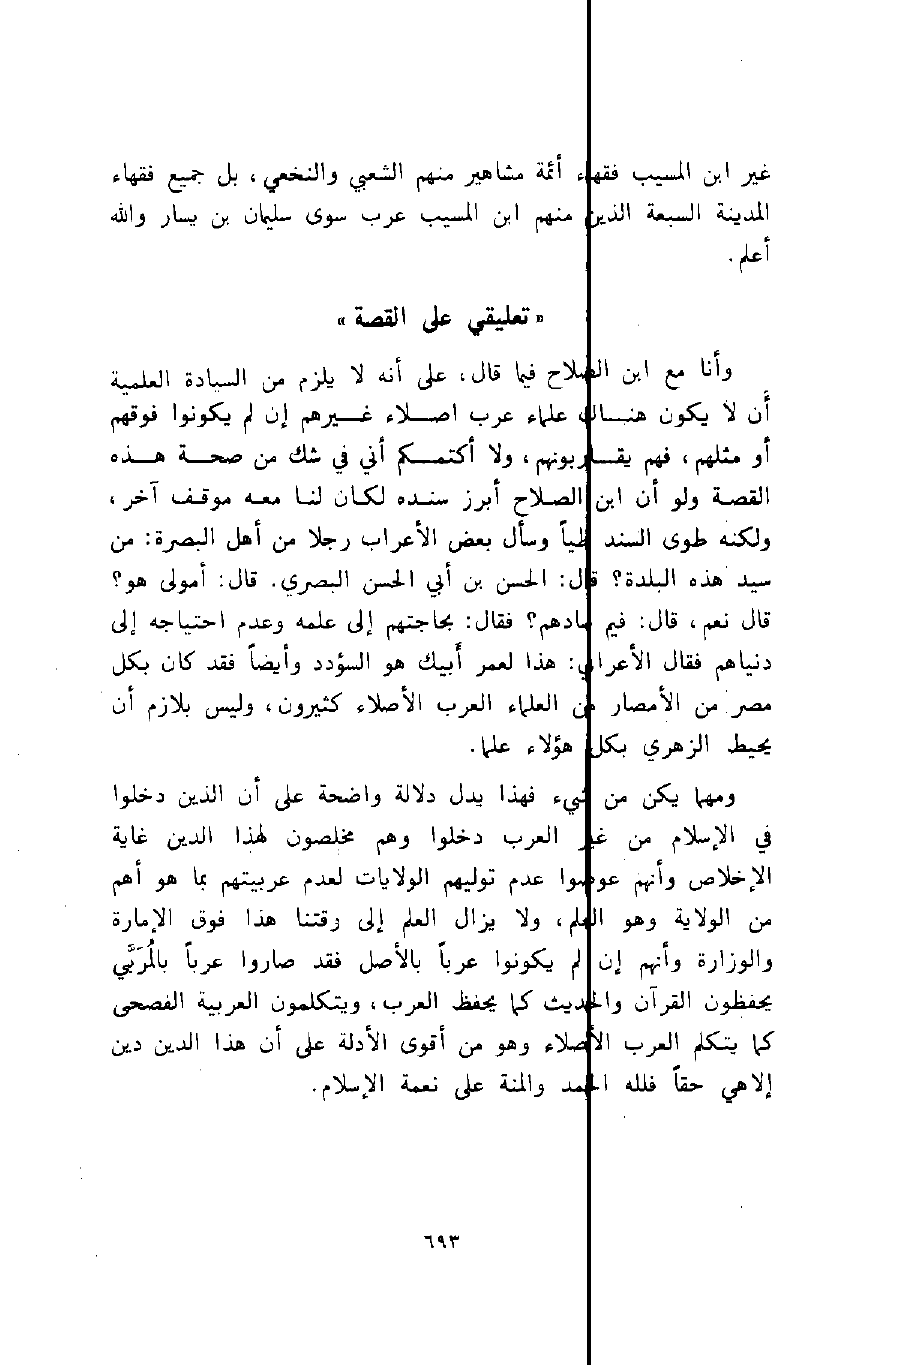 غير ابن المسيب فقهاء أئمة مشاهير منهم الشعبي والنخعي، بل جميع فقهاء
المدينة السبعة الذين منهم ابن المسيب عرب سوى سليمان بن يسار والله
أعلم.
«تعليقي على القصة»
وأنا مع ابن الصلاح فيما قال، على أنه لا يلزم من السيادة العلمية
أن لا يكون هنالك علماء عرب اصلاء غيرهم إن لم يكونوا فوقهم
أو مثلهم، فهم يقاربونهم، ولا أكتمكم أني في شك من صحة هذه
القصة ولو أن ابن الصلاح أبرز سنده لكان لنا معه موقف آخر،
ولكنه طوى السند طياً وسأل بعض الأعراب رجلا من أهل البصرة: من
سيد هذه البلدة؟ قال: الحسن بن أبي الحسن البصري. قال: أمولى هو؟
قال نعم، قال: فيم سادهم؟ فقال: بحاجتهم إلى علمه وعدم احتياجه إلى
دنياهم فقال الأعرابي: هذا لعمر أبيك هو السؤدد وأيضاً فقد كان بكل
مصر من الأمصار من العلماء العرب الأصلاء كثيرون، وليس بلازم أن
يحيط الزهري بكل هؤلاء علما.
ومهما يكن من شيء فهذا يدل دلالة واضحة على أن الذين دخلوا
في الإسلام من غير العرب دخلوا وهم مخلصون لهذا الدين غاية
الإخلاص وأنهم عوضوا عدم توليهم الولايات لعدم عربيتهم بما هو أهم
من الولاية وهو العلم، ولا يزال العلم إلى وقتنا هذا فوق الإمارة
والوزارة وأنهم إن لم يكونوا عرباً بالأصل فقد صاروا عرباً بالمُرَبَّي
يحفظون القرآن والحديث كما يحفظ العرب، ويتكلمون العربية الفصحى
كما يتكلم العرب الأصلاء وهو من أقوى الأدلة على أن هذا الدين دين
إلاهي حقاً فلله الحمد والمنة على نعمة الإسلام.
٦٩٣